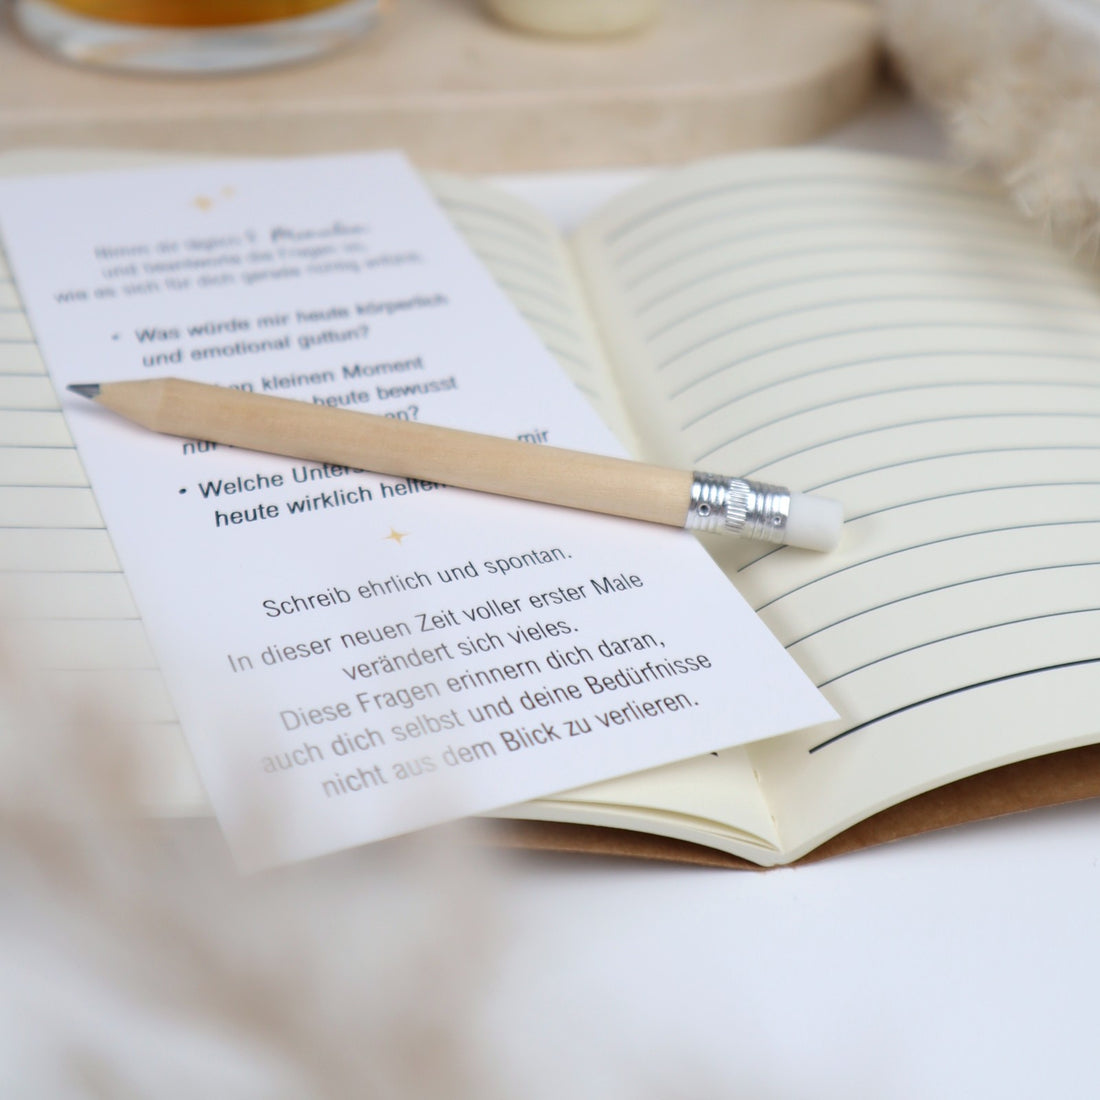 Nimm dir täglich 5 Minuten
und beantworte die Fragen so,
wie es sich für dich gerade richtig anfühlt.
• Was würde mir heute körperlich
und emotional guttun?
kleinen Moment
heute bewusst
• Welche
mir
heute wirklich helfen
Schreib ehrlich und spontan.
In dieser neuen Zeit voller erster Male
verändert sich vieles.
Diese Fragen erinnern dich daran,
auch dich selbst und deine Bedürfnisse
nicht aus dem Blick zu verlieren.